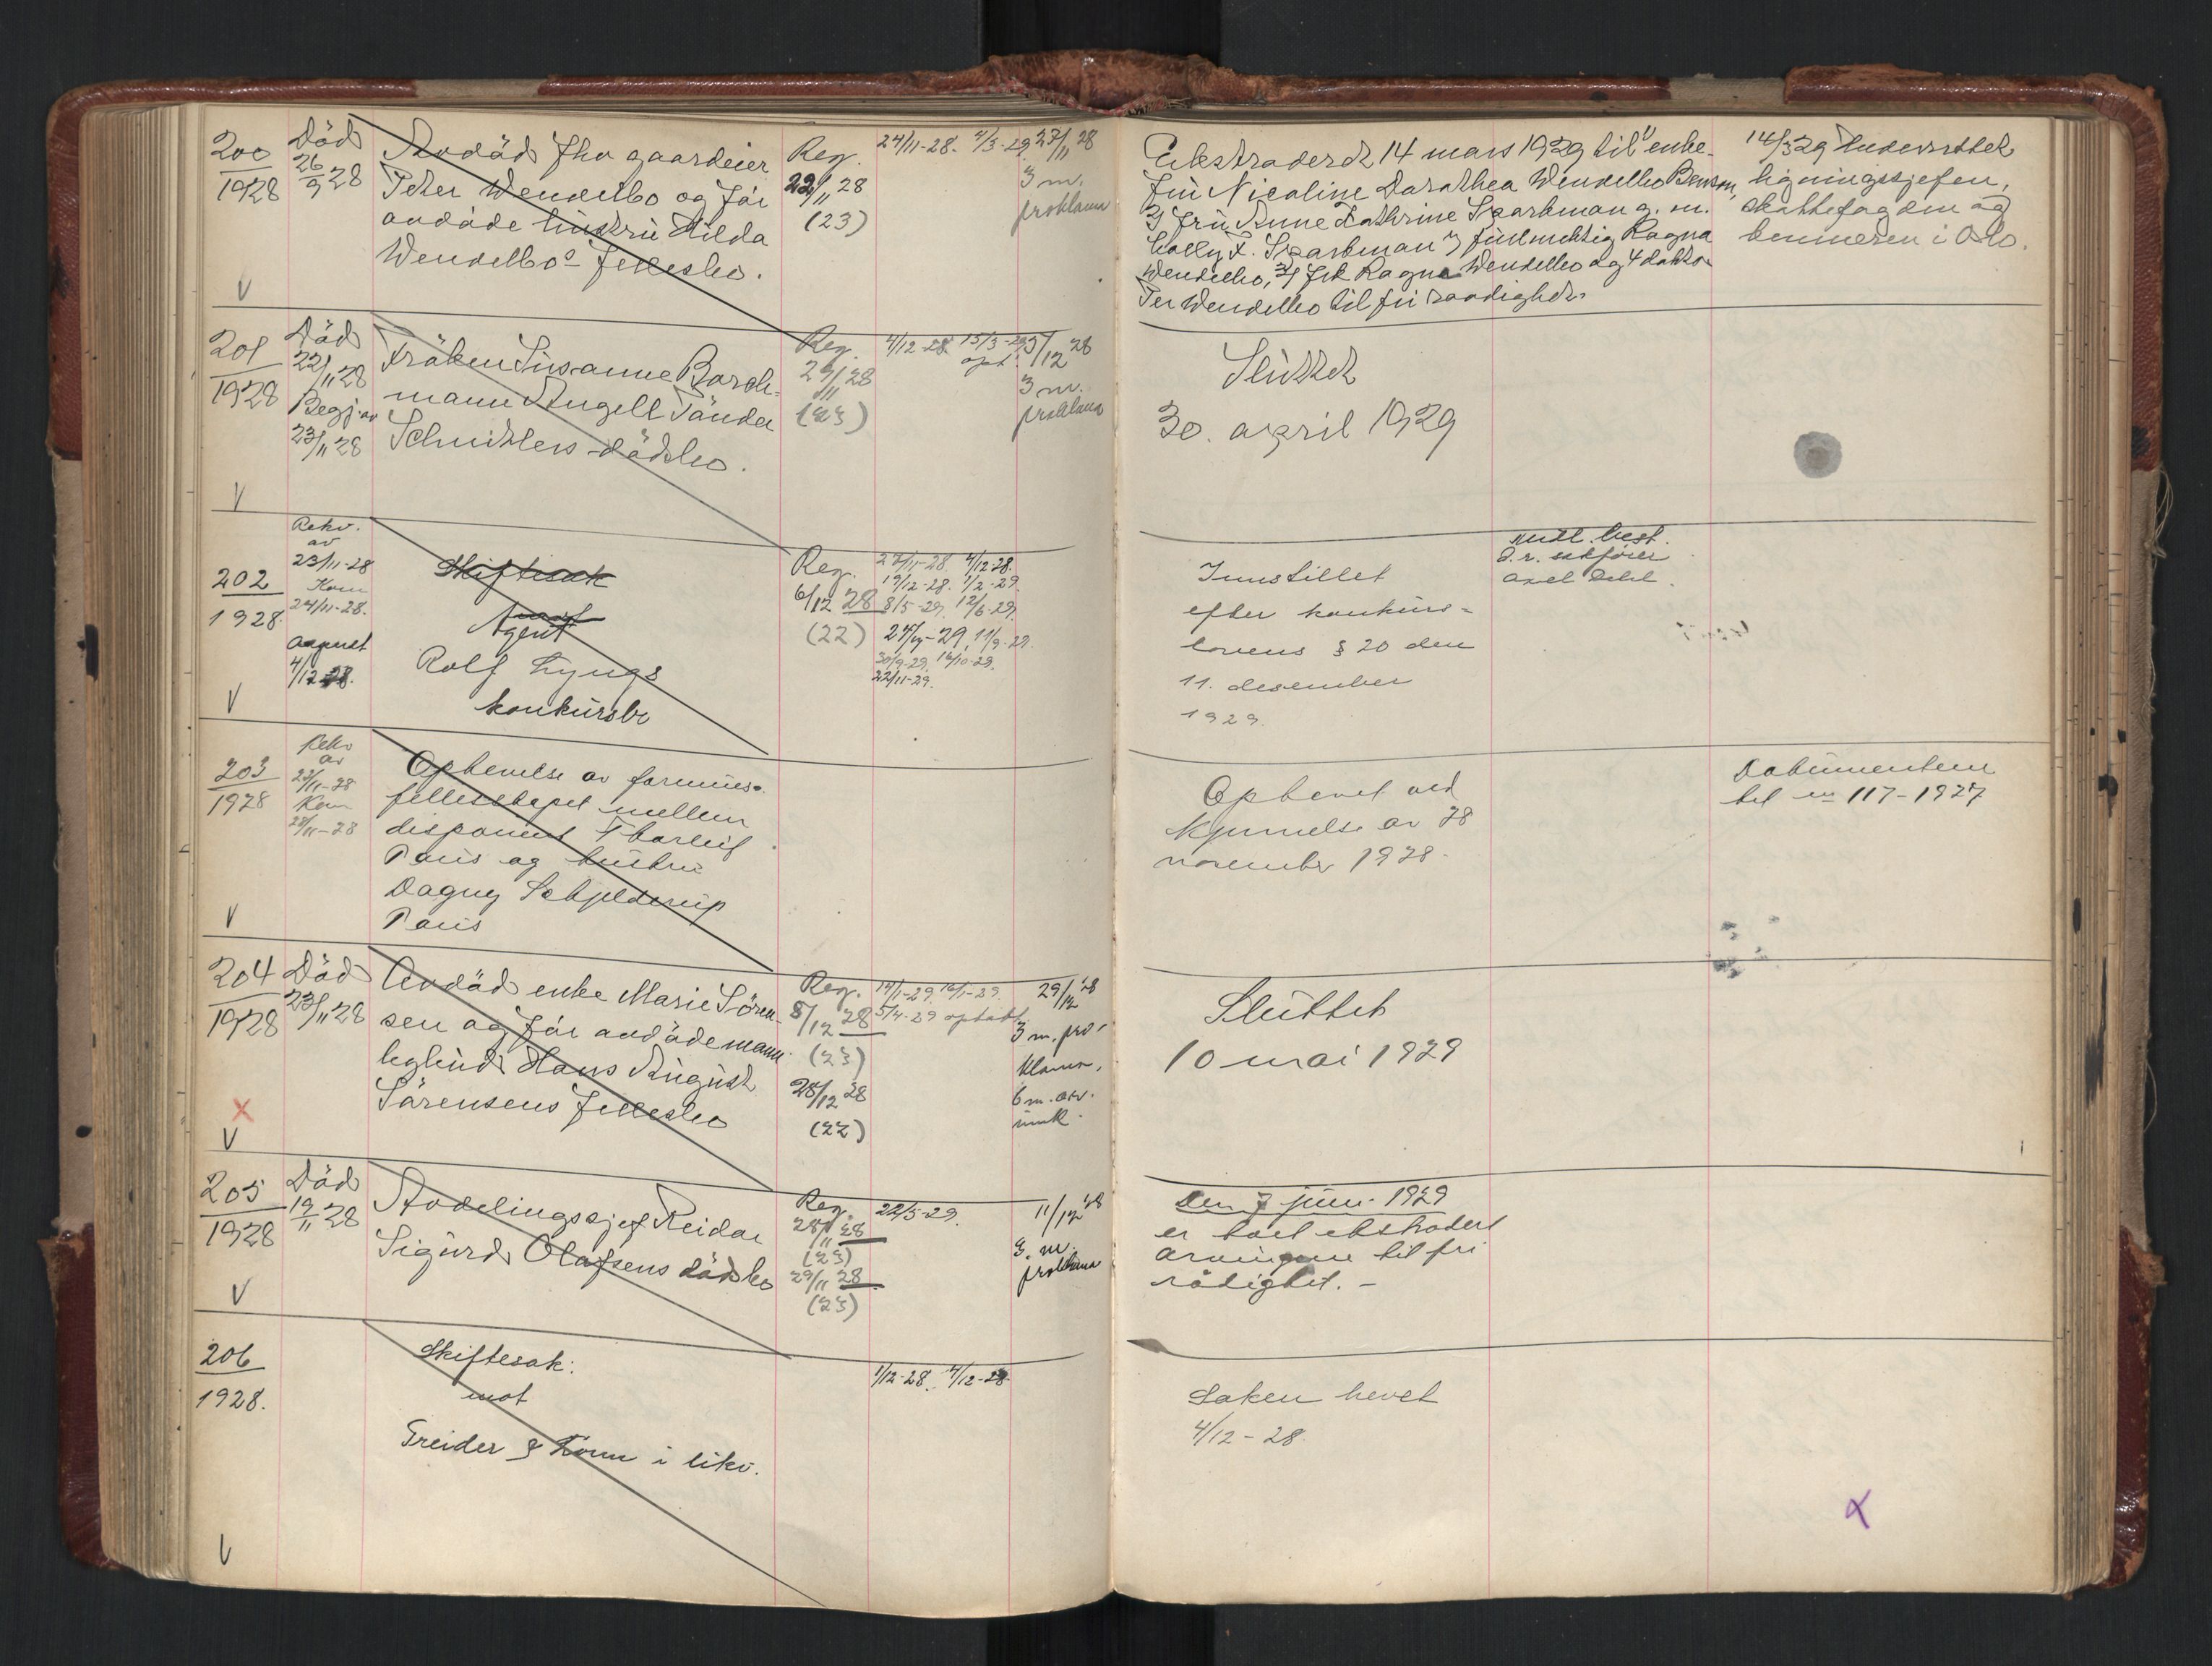 200
1928
Död
26/9 28
Avdöd fhv gaardeier
Peter Wendelbo og før
avdøde hustru Hilda
Wendelbos fellesbo.
V
Reg.
22/11 28
(23)
24/11-28. 4/3-29.
27/11 28
3 m.
proklama
Ekstraderet 14 mars 1929 til 1) enke-
fru Nicoline Dorothea Wendelbo Benson,
2) fru Anne Kathrine Sparbman g. m.
Colly F. Sparbman 3) fuldmektig Ragna
Wendelbo, 3) frk Ragna Wendelbo og 4 doktor
Per Wendelbo til fri raadighet.
14/3 29 Underrettet
ligningssjefen,
skattefogden og
kemneren i Oslo.
201
1928
Död
22/11 28
Begj. av
23/11 28
Fröken Susanne Barch-
mann Angell Tånder
Schnitlers dødsbo.
V
Reg.
24/11 28
(23)
4/12-28. 15/3-29
opt.
5/12 28
3 m.
proklama
Sluttet
30. april 1929
202
1928.
Rekv.
av
23/11-28
Kom
24/11-28.
August
4/12 28.
Skiftesak
mot
Agent
Rolf Lyngs
konkursbo
V
Reg.
6/12 28
(22)
27/11-28. 4/12 28.
19/12-28. 1/2-29.
8/5-29. 12/6-29.
11/9-29.
30/9-29. 16/10-29.
22/11-29.
Innstillet
efter konkurs-
lovens § 20 den
11. desember
1929.
Midl. best.
o. r. sakfører
Axel Dehl.
203
1928
Rekv
av
27/11-28
Kom
28/11-28
Ophevelse av formues-
fellesskapet mellem
disponent Thorleif
Paus og hustru
Dagny Schjelderup
Paus
V
Ophevet ved
kjennelse av 28
november 1928.
Dokumentene
til nr 117-1927
204
1928
Död
23/11 28
Avdöd enke Marie Sören-
sen og før avdøde mann
bghud Hans August
Sørensens fellesbo
X
V
Reg.
8/12 28
(23)
28/12 28
(22)
14/1-29. 16/1-29.
5/4-29 optatt
29/12 28
3 m. pro-
klama.
6 m. arv.
innk.
Sluttet
10 mai 1929
205
1928
Död
19/11 28
Avdelingssjef Reidar
Sigurd Olafsens dødsbo
V
Reg.
28/11 28
(23)
29/11 28
(23)
22/5-29.
11/12 28
3. m.
proklama
Den 7 juni 1929
er boet ekstradert
arvingene til fri
rådighet. -
206
1928.
Skiftesak:
mot
Greider & Conn i likv.
V
1/12-28. 4/12-28.
Saken hevet
4/12-28.
X